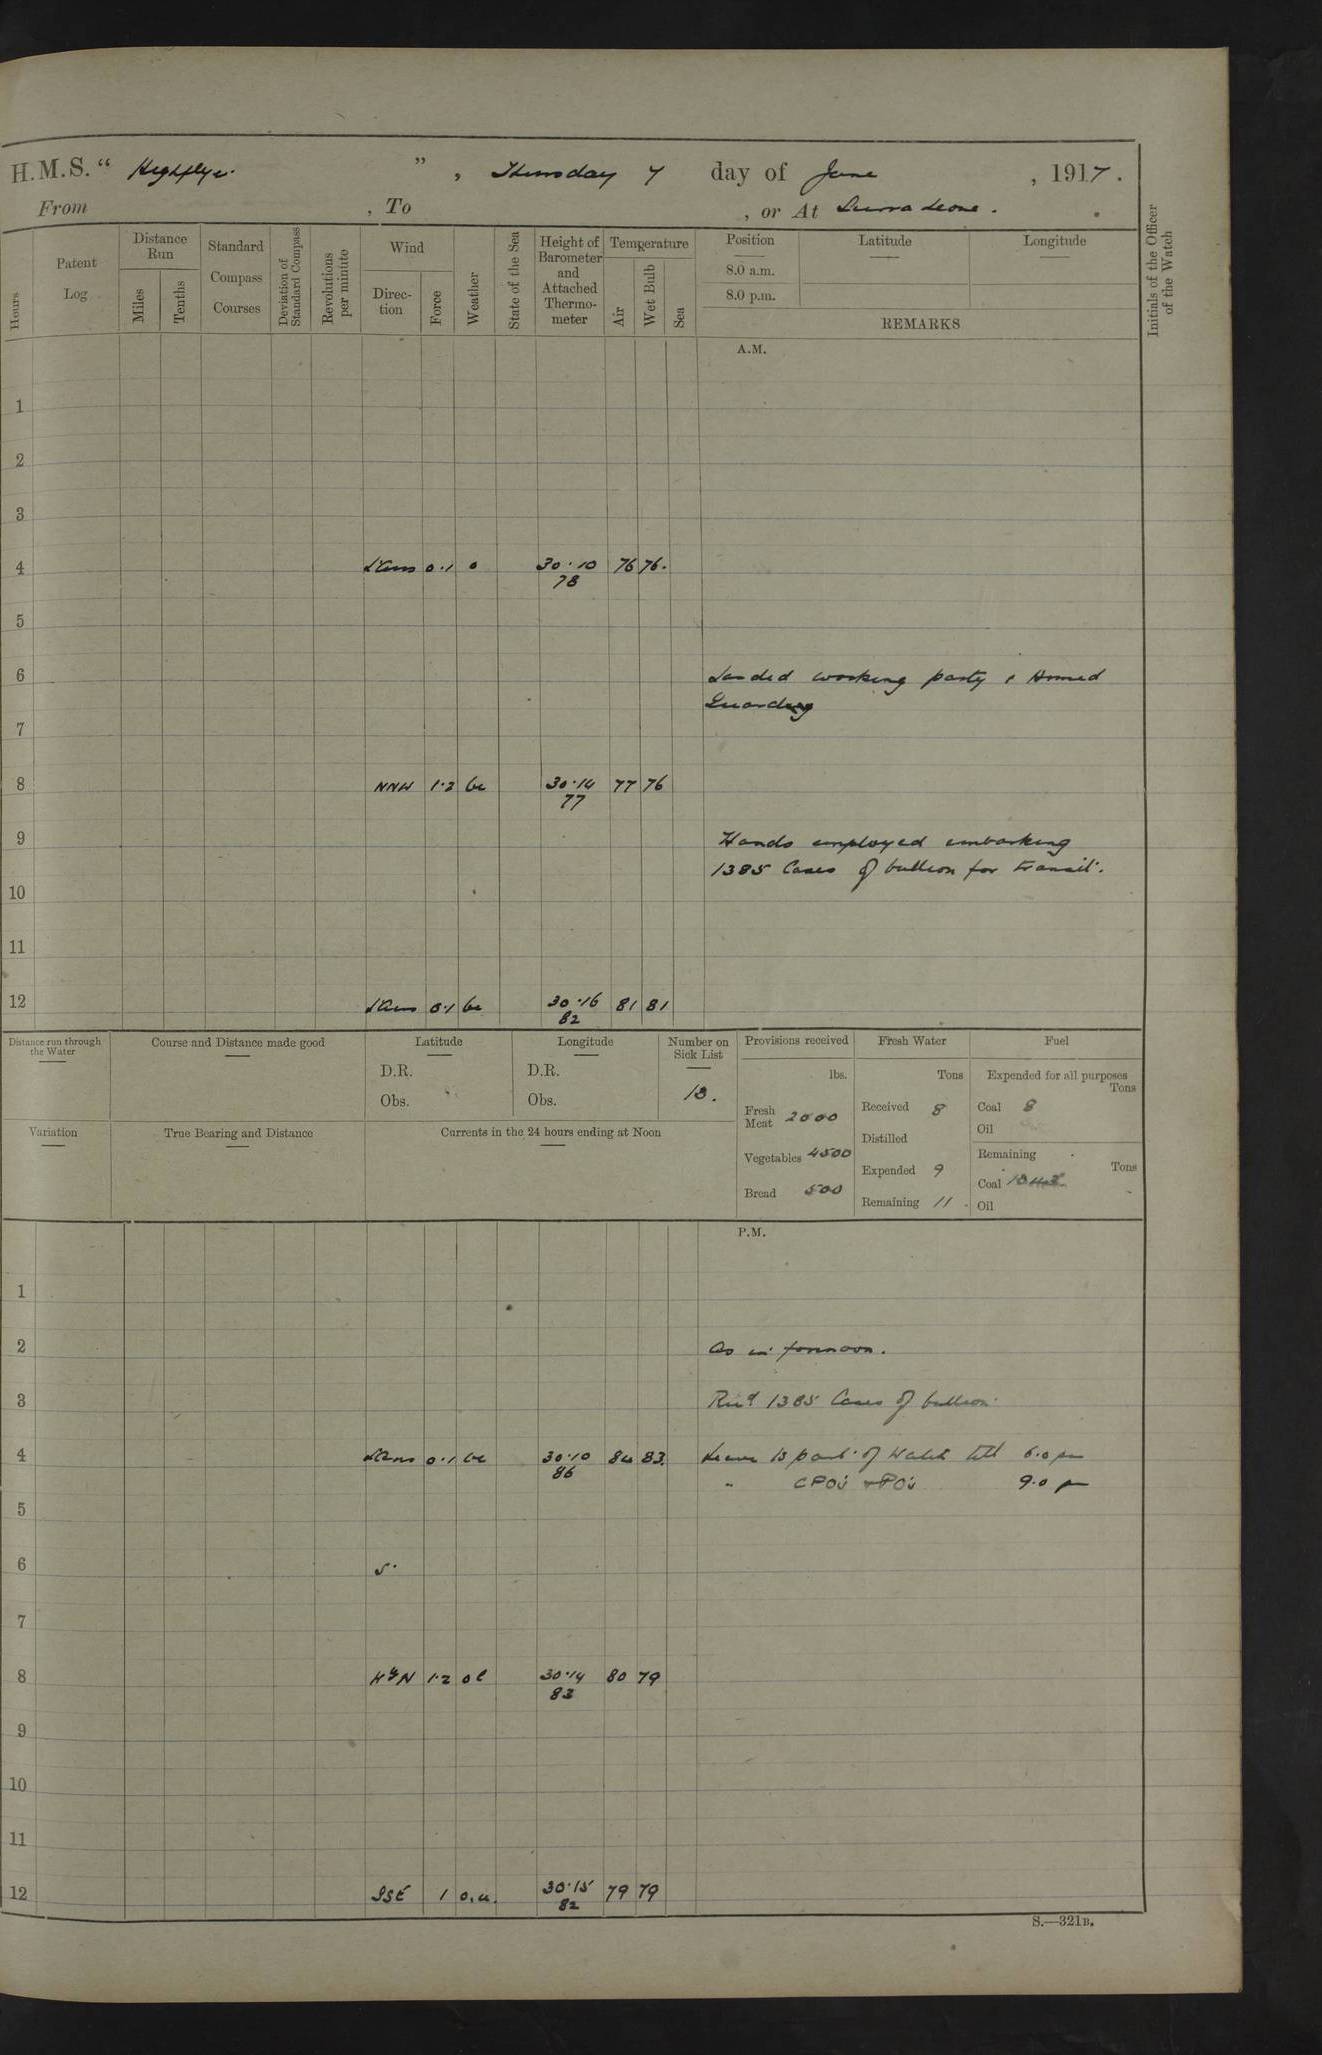 H.M.S. " Highflyer ", Thursday 7 day of June, 1917.
From , To , or At Sierra Leone.
Hours
Patent Log
Distance Run
Miles
Tenths
Standard Compass Courses
Deviation of Standard Compass
Revolutions per minute
Wind
Direction
Force
Weather
State of the Sea
Height of Barometer and Attached Thermometer
Temperature
Air
Wet Bulb
Sea
Position
8.0 a.m.
8.0 p.m.
Latitude
Longitude
REMARKS
Initials of the Officer of the Watch
A.M.
1
2
3
4 0.1 o 30.10 76 76.
78
5
6 Landed working party & Armed
Guard
7
8 NNW 1.2 bc 30.14 77 76
77
9 Hands employed embarking
1385 Cases of bullion for transit.
10
11
12 0.1 bc 30.16 81 81
82
Distance run through the Water
Course and Distance made good
Latitude
D.R.
Obs.
Longitude
D.R.
Obs.
Number on Sick List
13.
Provisions received
lbs.
Fresh Meat 2000
Vegetables 4500
Bread 500
Fresh Water
Tons
Received 8
Distilled
Expended 9
Remaining 11
Fuel
Expended for all purposes
Tons
Coal 8
Oil
Remaining
Tons
Coal
Oil
Variation
True Bearing and Distance
Currents in the 24 hours ending at Noon
P.M.
1
2 As in forenoon.
3 Recd 1385 Cases of bullion
4 0.1 bc 30.10 84 83. Leave to part of Watch till 6.0 pm
86
" CPO's & PO's 9.0 pm
5
6
7
8 WbyN 1.2 ol 30.14 80 79
83
9
10
11
12 SSE 1 o.u. 30.15 79 79
82
S.—321B.